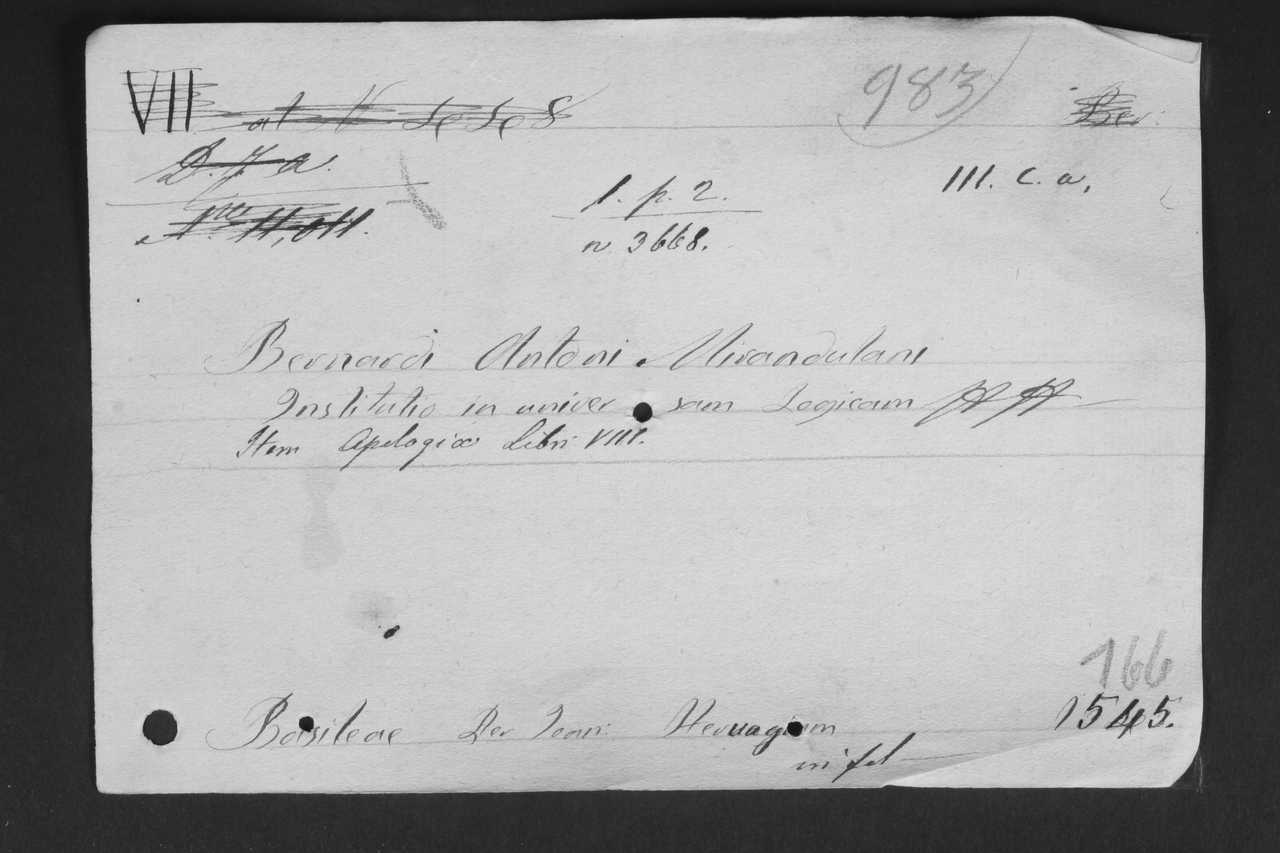 VII
983
Ber.
D. J. a.
III. c. a,
1. p. 2.
Nro. 11,011.
n 3668.
Bernardi Antoni Mirandulani
Institutio in univer sam Logicam
Item Apologiæ Libri VIII.
166
Basileae Per Joan: Hervagium 1545.
in fol